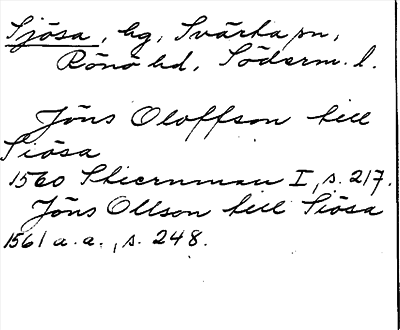 Sjösa, hg, Svärta sn,
Rönö hd, Söderm. l.
Jöns Oloffson till
Siösa
1560 Stiernman I, s. 217.
Jöns Ollson till Siösa
1561 a. a., s. 248.